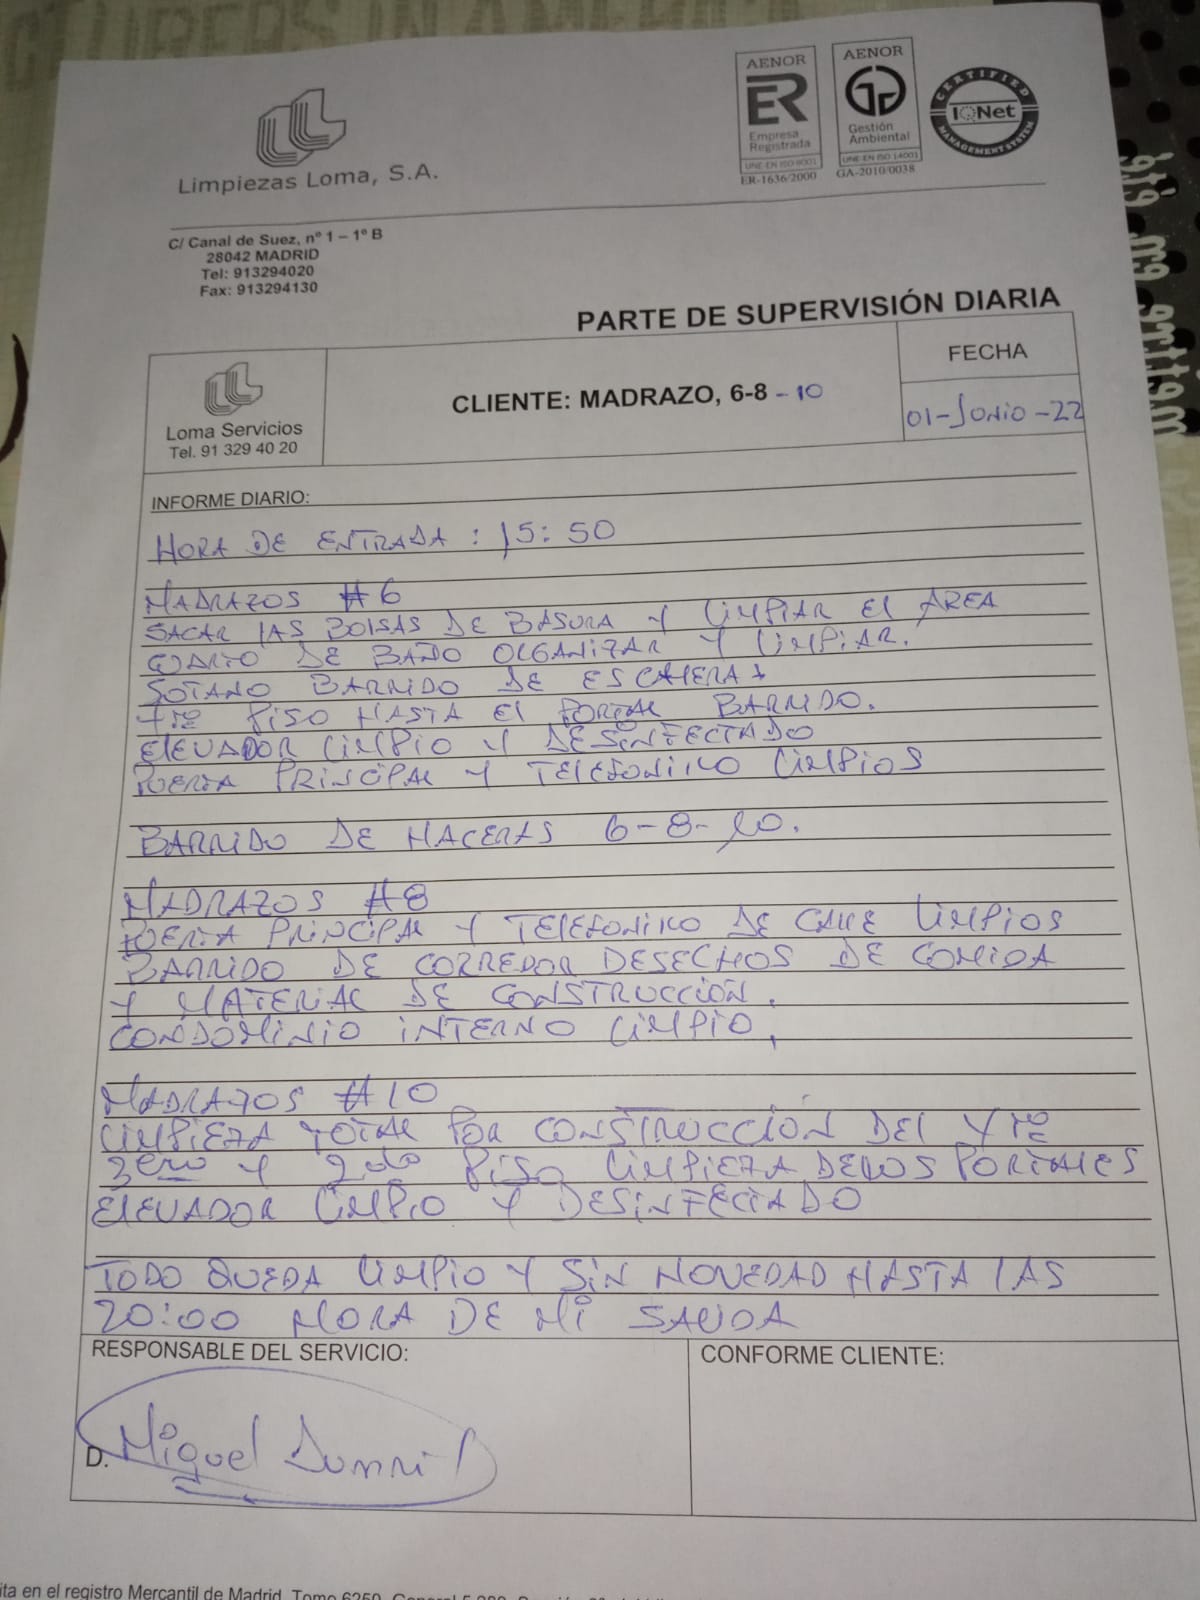 AENOR
ER
Empresa
Registrada
UNE-EN ISO 9001
ER-1636/2000
AENOR
Gestión
Ambiental
UNE-EN ISO 14001
GA-2010/0038
CERTIFIED
IQNet
MANAGEMENT SYSTEM
Limpiezas Loma, S.A.
C/ Canal de Suez, nº 1 – 1º B
28042 MADRID
Tel: 913294020
Fax: 913294130
PARTE DE SUPERVISIÓN DIARIA
Loma Servicios
Tel. 91 329 40 20
CLIENTE: MADRAZO, 6-8 - 10
FECHA
01-Junio-22
INFORME DIARIO:
HORA DE ENTRADA : 15:50
MADRAZOS #6
SACAR lAS BOlSAS DE BASURA Y LIMPIAR El AREA
CUARTO DE BAÑO ORGANIZAR Y LIMPIAR.
SOTANO BARRIDO DE ESCALERAS
PISO HASTA El PORTAL BARRIDO.
ElEVADOR LIMPIO Y DESINFECTADO
PUERTA PRINCIPAL Y TELEFONILLO LIMPIOS
BARRIDO DE HACERAS 6-8-10.
MADRAZOS #8
PUERTA PRINCIPAL Y TELEFONILLO DE CALLE LIMPIOS
BARRIDO DE CORREDOR DESECHOS DE COMIDA
Y MATERIAL DE CONSTRUCCIÓN.
CONDOMINIO INTERNO LIMPIO.
MADRAZOS #10
LIMPIEZA TOTAL POR CONSTRUCCION DEl 4TO
3ERO Y 2DO PISO LIMPIEZA DE LOS PORTALES
ElEVADOR LIMPIO Y DESINFECTADO
TODO QUEDA LIMPIO Y SIN NOVEDAD HASTA lAS
20:00 HORA DE MI SALIDA
RESPONSABLE DEL SERVICIO:
CONFORME CLIENTE:
D. Miguel
ita en el registro Mercantil de Madrid, Tomo 6250